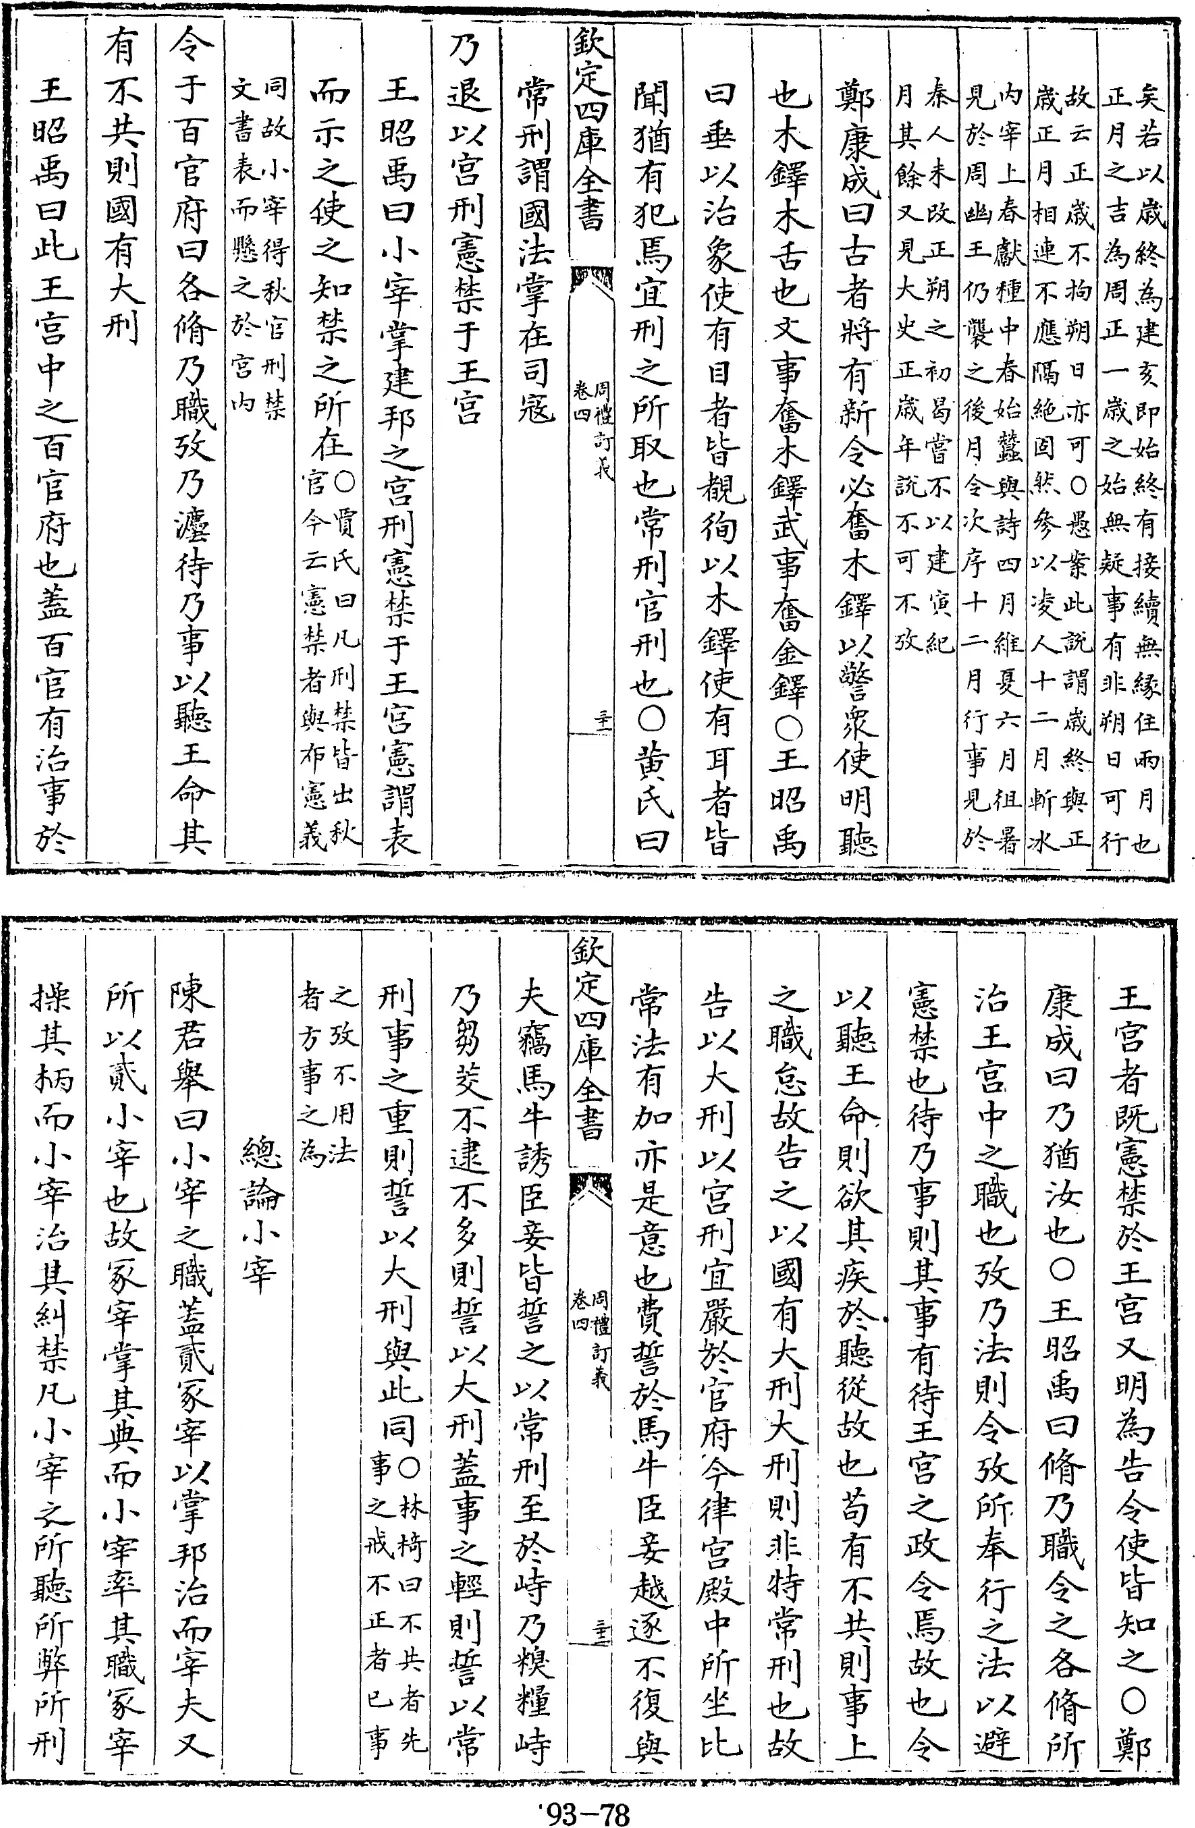 矣若以歲終為建亥即始終有接續無緣住兩月也
正月之吉為周正一歲之始無疑事有非朔日可行
故云正歲不拘朔日亦可○愚案此說謂歲終與正
歲正月相連不應隔絶固然參以凌人十二月斬冰
內宰上春獻種中春始蠶與詩四月維夏六月徂暑
見於周幽王仍襲之後月令次序十二月行事見於
秦人未改正朔之初曷嘗不以建寅紀
月其餘又見大史正歲年說不可不攷
鄭康成曰古者將有新令必奮木鐸以警衆使明聽
也木鐸木舌也文事奮木鐸武事奮金鐸○王昭禹
曰垂以治象使有目者皆覩徇以木鐸使有耳者皆
聞猶有犯焉宜刑之所取也常刑官刑也○黄氏曰
欽定四庫全書
周禮訂義
卷四
常刑謂國法掌在司寇
乃退以宫刑憲禁于王宫
王昭禹曰小宰掌建邦之宫刑憲禁于王宫憲謂表
而示之使之知禁之所在○賈氏曰凡刑禁皆出秋
官今云憲禁者與布憲義
同故小宰得秋官刑禁
文書表而懸之於宫内
令于百官府曰各脩乃職攷乃灋待乃事以聽王命其
有不共則國有大刑
王昭禹曰此王宫中之百官府也蓋百官有治事於
王宫者既憲禁於王宫又明為告令使皆知之○鄭
康成曰乃猶汝也○王昭禹曰脩乃職令之各脩所
治王宫中之職也攷乃法則令攷所奉行之法以避
憲禁也待乃事則其事有待王宫之政令焉故也令
以聽王命則欲其疾於聽從故也苟有不共則事上
之職怠故告之以國有大刑大刑則非特常刑也故
告以大刑以宫刑宜嚴於官府今律宫殿中所坐比
常法有加亦是意也費誓於馬牛臣妾越逐不復與
欽定四庫全書
周禮訂義
卷四
夫竊馬牛誘臣妾皆誓之以常刑至於峙乃糗糧峙
乃芻茭不逮不多則誓以大刑蓋事之輕則誓以常
刑事之重則誓以大刑與此同○林椅曰不共者先
事之戒不正者已事
之攷不用法
者方事之為
總論小宰
陳君舉曰小宰之職蓋貳冢宰以掌邦治而宰夫又
所以貳小宰也故冢宰掌其典而小宰率其職冢宰
操其柄而小宰治其糾禁凡小宰之所聽所弊所刑
'93-78